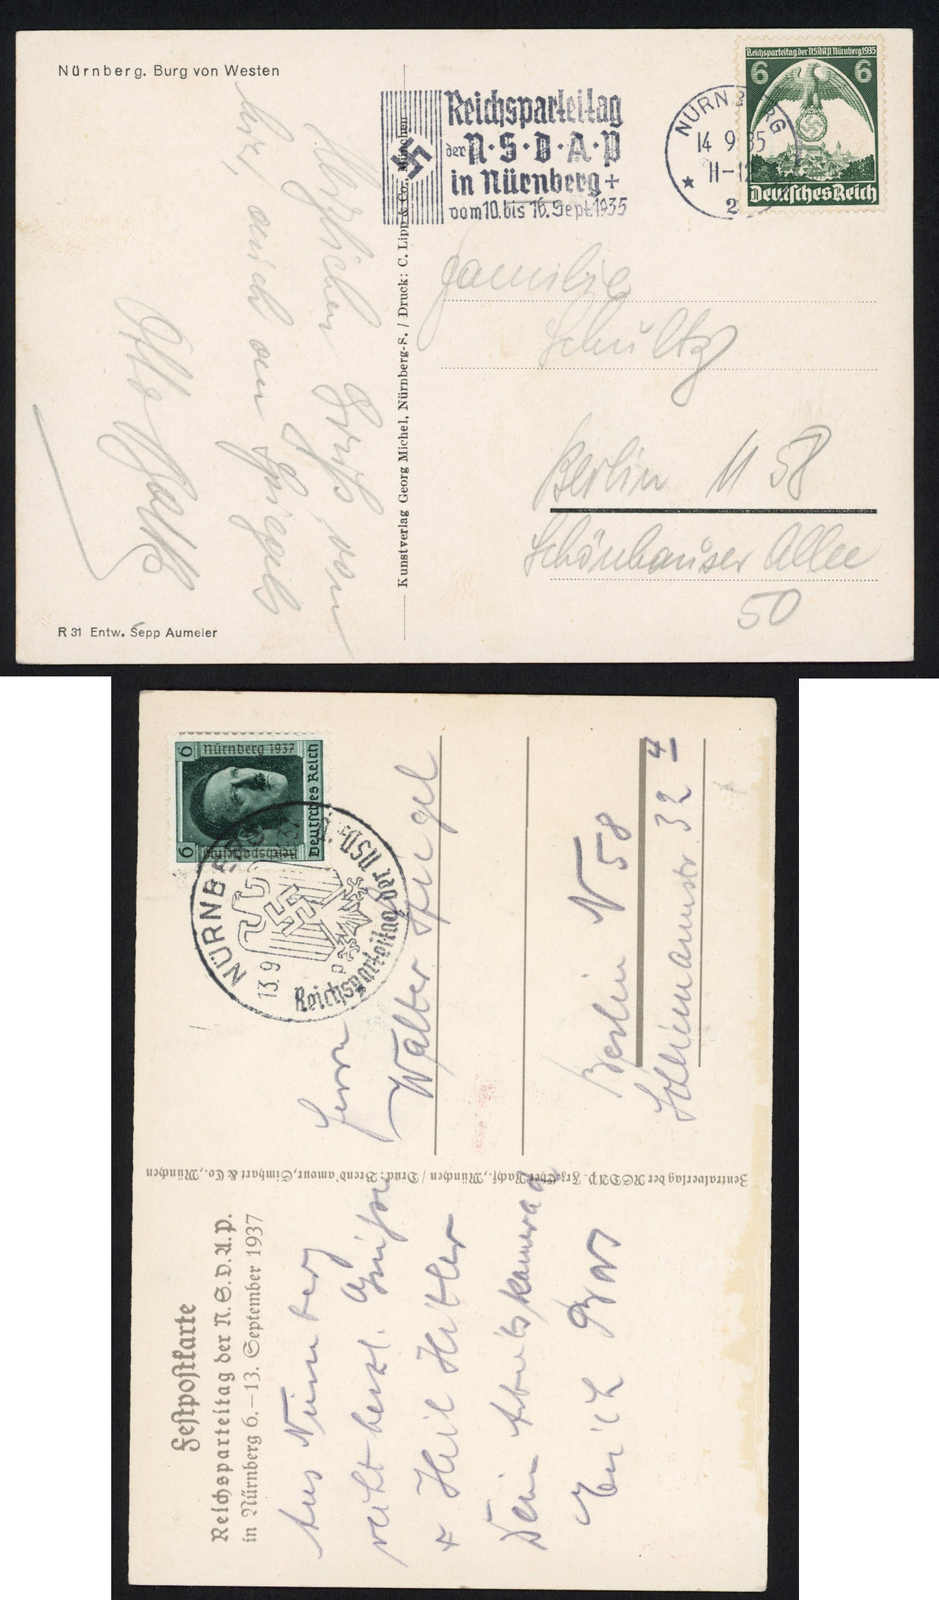 Nürnberg. Burg von Westen
Reichsparteitag
der N·S·D·A·P
in Nürnberg +
vom 10. bis 16. Sept. 1935
NÜRNBERG
14 9 35
11-12
2
Reichsparteitag der NSDAP Nürnberg 1935
6 6
Deutsches Reich
Herzlichen Gruß von
hier, auch an Spiegels
Otto
Familie
Schultz
Berlin N 58
Schönhauser Allee
50
Kunstverlag Georg Michel, Nürnberg-S. / Druck: C. Lipp & Co., München
R 31 Entw. Sepp Aumeier
6 Nürnberg 1937
Deutsches Reich
6 Reichsparteitag
NÜRNBERG
13.9
Reichsparteitag der NSDAP
Herrn
Walter Spiegel
Berlin N 58
Schliemannstr. 32 4
Zentralverlag der NSDAP. Frz. Eher Nachf., München / Druck: Brend'amour, Simhart & Co., München
Festpostkarte
Reichsparteitag der N.S.D.A.P.
in Nürnberg 6.–13. September 1937
Aus Nürnberg
recht herzl. Grüße
+ Heil Hitler
Dein Arbeitskamerad
Erich